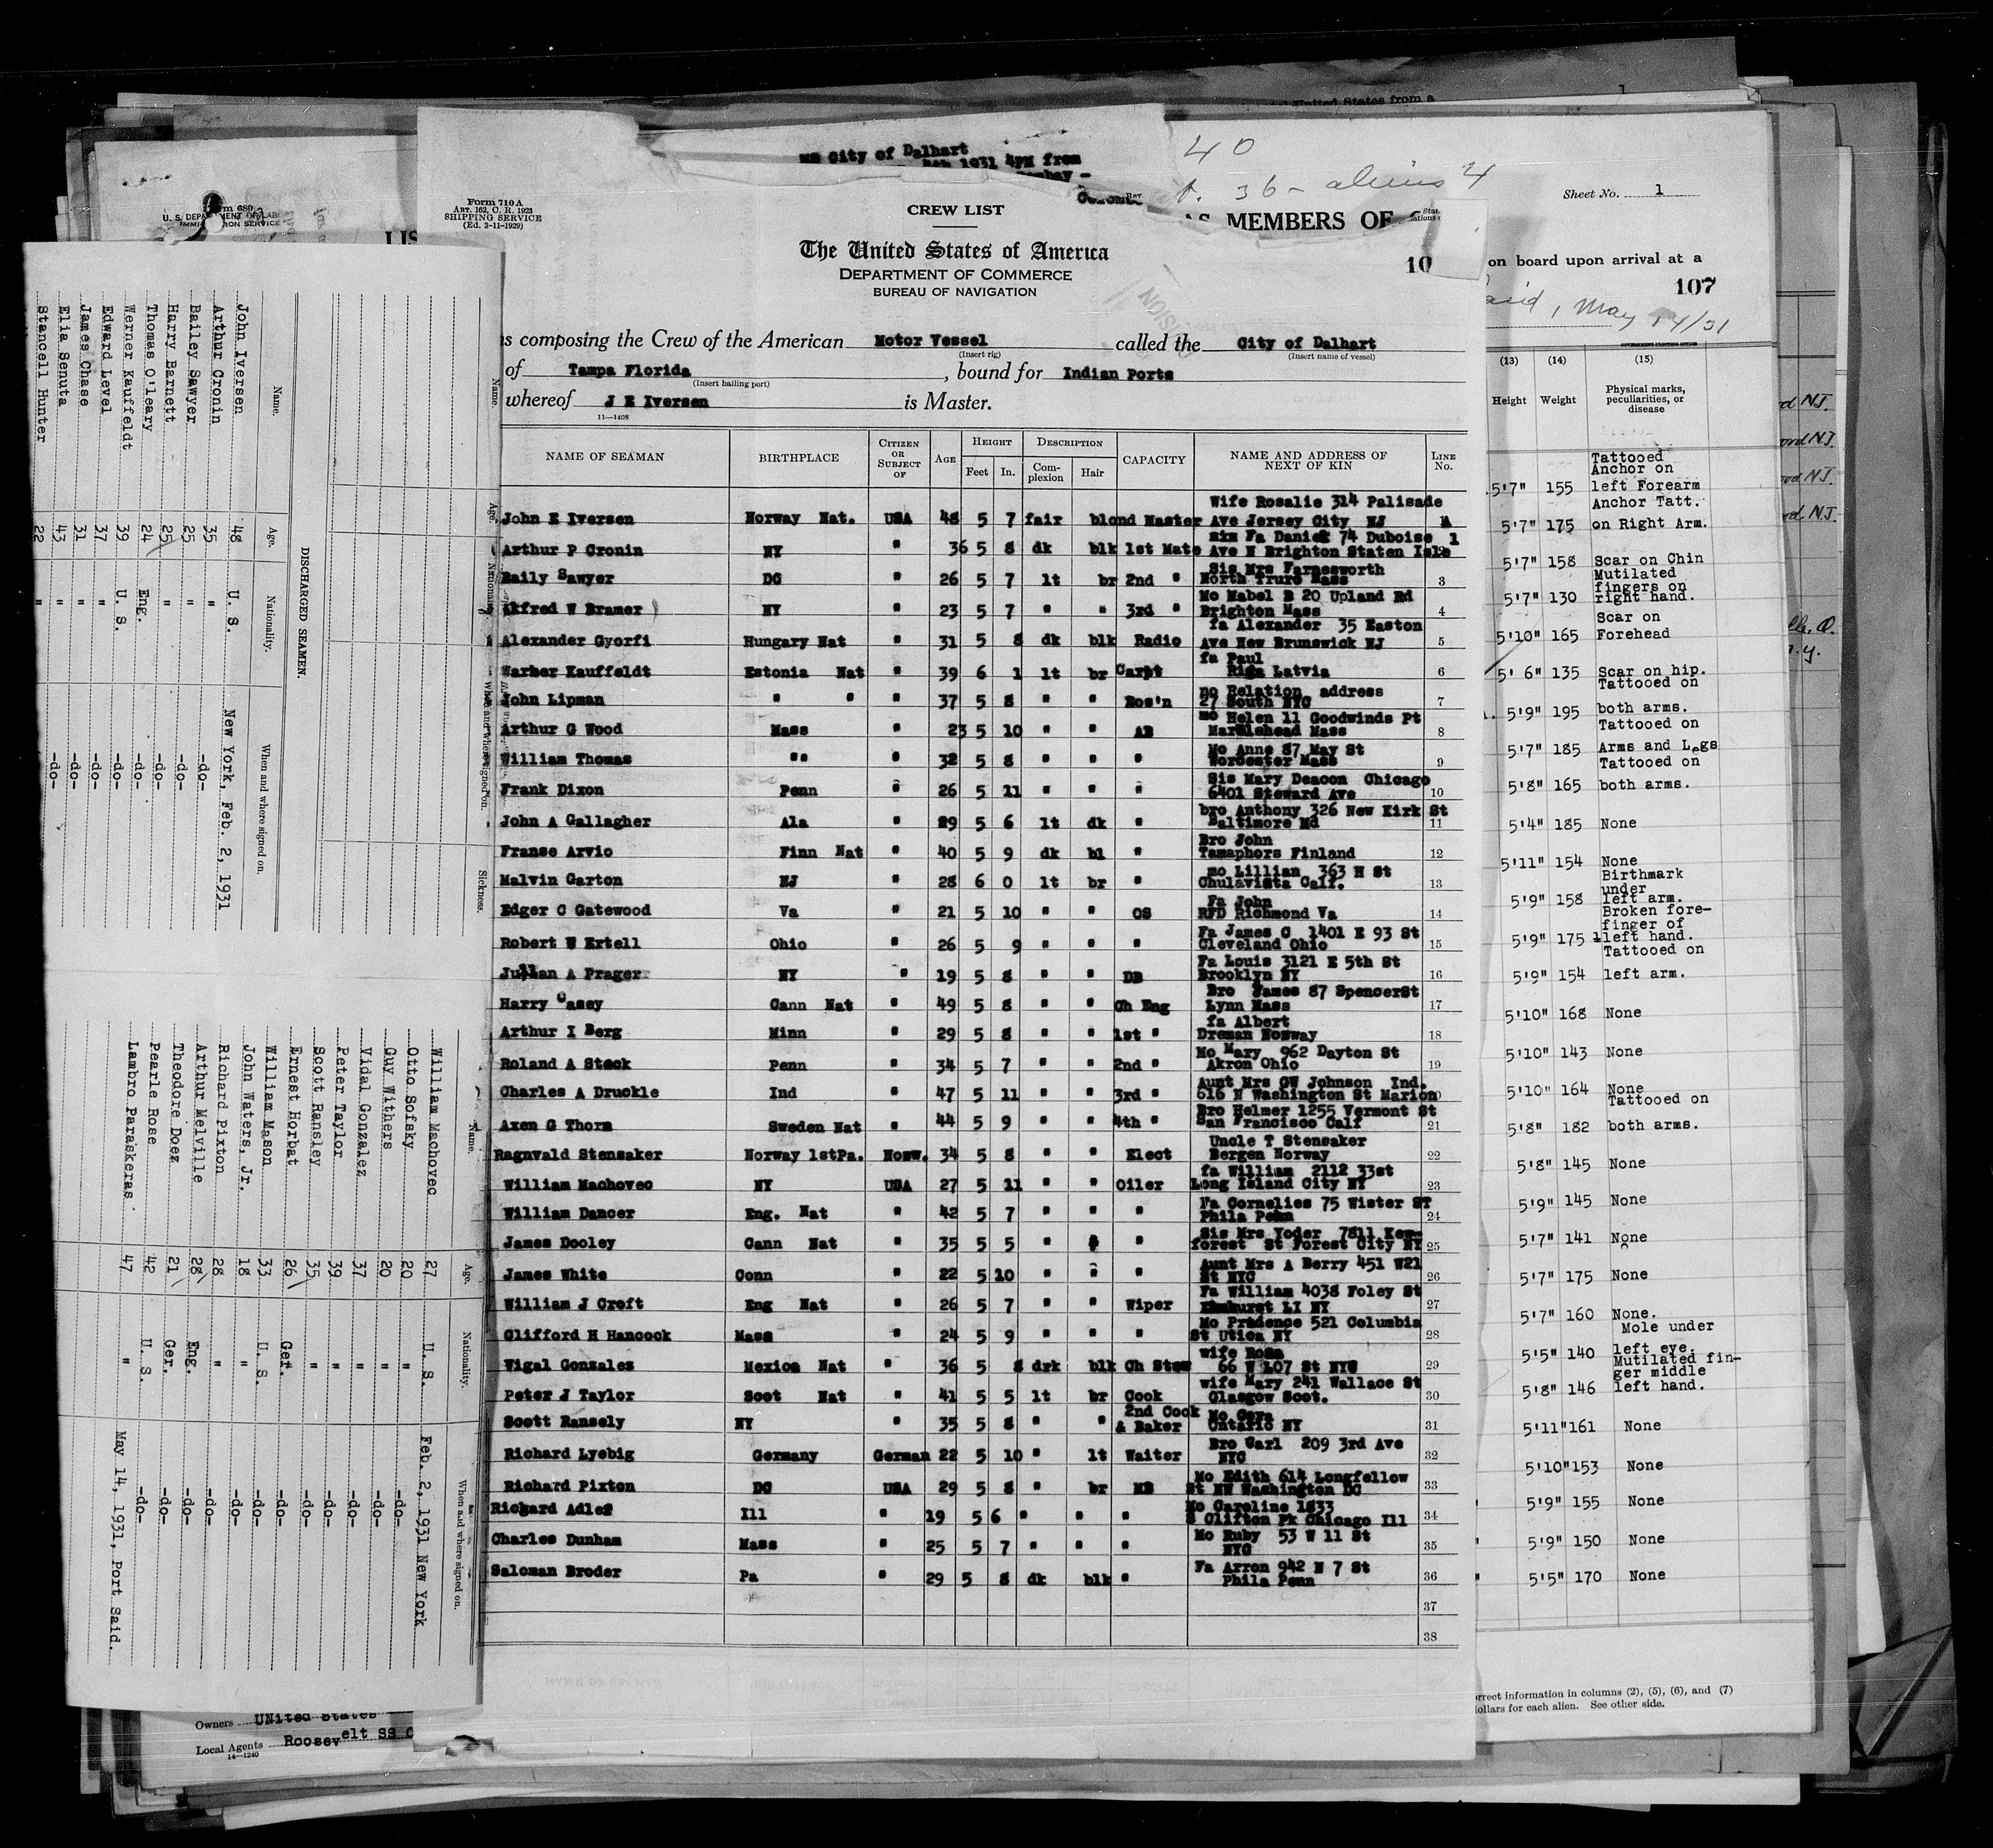 MS City of Dalhart
1931 4PM from
United States from a
40
36 - aliens 4
Sheet No. 1
AS MEMBERS OF
on board upon arrival at a
107
Said, May 14/31
Form 710 A
ART. 162, C. R. 1923
SHIPPING SERVICE
(Ed. 3-11-1929)
CREW LIST
The United States of America
DEPARTMENT OF COMMERCE
BUREAU OF NAVIGATION
10
composing the Crew of the American Motor Vessel called the City of Dalhart
(Insert rig) (Insert name of vessel)
of Tampa Florida, bound for Indian Ports
(Insert hailing port)
whereof J E Iversen is Master.
11—1408
NAME OF SEAMAN BIRTHPLACE CITIZEN OR SUBJECT OF AGE HEIGHT Feet In. DESCRIPTION Complexion Hair CAPACITY NAME AND ADDRESS OF NEXT OF KIN LINE No.
Wife Rosalie 314 Palisade
John E Iversen Norway Nat. USA 48 5 7 fair blond Master Ave Jersey City NJ
Fa Daniel 74 Duboise
Arthur P Cronin NY " 36 5 8 dk blk 1st Mate Ave N Brighton Staten Isle
Sis Mrs Farnesworth
Baily Sawyer DC " 26 5 7 lt br 2nd " North Truro Mass 3
Mo Mabel B 20 Upland Rd
Alfred W Bramer NY " 23 5 7 " " 3rd " Brighton Mass 4
fa Alexander 35 Easton
Alexander Gyorfi Hungary Nat " 31 5 8 dk blk Radio Ave New Brunswick NJ 5
fa Paul
Warner Kauffeldt Estonia Nat " 39 6 1 lt br Carpt Riga Latvia 6
no Relation address
John Lipman " " " 37 5 8 " " Bos'n 27 South NYC 7
mo Helen 11 Goodwinds Pt
Arthur G Wood Mass " 23 5 10 " " AB Marblehead Mass 8
Mo Anne 87 May St
William Thomas "" " 32 5 8 " " " Worcester Mass 9
Sis Mary Deacon Chicago
Frank Dixon Penn " 26 5 11 " " " 6401 Steward Ave 10
bro Anthony 326 New Kirk St
John A Gallagher Ala " 29 5 6 lt dk " Baltimore Md 11
Bro John
Franse Arvio Finn Nat " 40 5 9 dk bl " Tamaphors Finland 12
mo Lillian 363 H St
Malvin Garton NJ " 28 6 0 lt br " Chulavista Calf. 13
Fa John
Edger C Gatewood Va " 21 5 10 " " OS RFD Richmond Va 14
Fa James C 1401 E 93 St
Robert W Ertell Ohio " 26 5 9 " " " Cleveland Ohio 15
Fa Louis 3121 E 5th St
Julian A Prager NY " 19 5 8 " " DB Brooklyn NY 16
Bro James 87 SpencerSt
Harry Casey Cann Nat " 49 5 8 " " Ch Eng Lynn Mass 17
fa Albert
Arthur I Berg Minn " 29 5 8 " " 1st " Draman Norway 18
Mo Mary 962 Dayton St
Roland A Steck Penn " 34 5 7 " " 2nd " Akron Ohio 19
Aunt Mrs GW Johnson Ind.
Charles A Druckle Ind " 47 5 11 " " 3rd " 616 N Washington St Marion
Bro Helmer 1255 Vermont St
Axen G Thorn Sweden Nat " 44 5 9 " " 4th " San Francisco Calf 21
Uncle T Stensaker
Ragnvald Stensaker Norway 1stPa. Norw. 34 5 8 " " Elect Bergen Norway 22
fa William 2112 33st
William Machovec NY USA 27 5 11 " " Oiler Long Island City NY 23
Fa Cornelies 75 Wister ST
William Dancer Eng. Nat " 42 5 7 " " " Phila Penn 24
Sis Mrs Yoder 7811 Kew-
James Dooley Cann Nat " 35 5 5 " " " forest St Forest City NY 25
Aunt Mrs A Berry 451 W21
James White Conn " 22 5 10 " " " St NYC 26
Fa William 4038 Foley St
William J Croft Eng Nat " 26 5 7 " " Wiper Elmhurst LI NY 27
Mo Prudence 521 Columbia
Clifford H Hancock Mass " 24 5 9 " " " St Utica NY 28
wife Rosa
Vigal Gonzales Mexico Nat " 36 5 8 drk blk Ch Stew 66 W 107 St NYC 29
wife Mary 241 Wallace St
Peter J Taylor Scot Nat " 41 5 5 lt br Cook Glasgow Scot. 30
Scott Ransely NY " 35 5 8 " " 2nd Cook & Baker Mo Cora Ontario NY 31
Bro Carl 209 3rd Ave
Richard Lyebig Germany German 22 5 10 " lt Waiter NYC 32
Mo Edith 614 Longfellow
Richard Pixton DC USA 29 5 8 " br MB St NW Washington DC 33
Mo Caroline 1833
Richard Adler Ill " 19 5 6 " " " S Clifton Pk Chicago Ill 34
Mo Ruby 53 W 11 St
Charles Dunham Mass " 25 5 7 " " " NYC 35
Fa Arron 942 N 7 St
Saloman Broder Pa " 29 5 8 dk blk " Phila Penn 36
37
38
DISCHARGED SEAMEN.
Name. Age. Nationality. When and where signed on. Sickness.
John Iversen 48 U. S. New York, Feb. 2, 1931
Arthur Cronin 35 " -do-
Bailey Sawyer 25 " -do-
Harry Barnett 25 " -do-
Thomas O'leary 24 Eng. -do-
Werner Kauffeldt 39 U. S. -do-
Edward Level 37 " -do-
James Chase 31 " -do-
Elia Senuta 43 " -do-
Stancell Hunter 22 " -do-
Name. Age. Nationality. When and where signed on.
William Machovec 27 U. S. Feb. 2, 1931 New York
Otto Sofsky 20 " -do-
Guy Withers 20 " -do-
Vidal Gonzalez 37 " -do-
Peter Taylor 39 " -do-
Scott Ransley 35 " -do-
Ernest Horbat 26 Ger. -do-
William Mason 33 U. S. -do-
John Waters, Jr. 18 " -do-
Richard Pixton 28 " -do-
Arthur Melville 28 Eng. -do-
Theodore Doez 21 Ger. -do-
Pearle Rose 42 U. S. -do-
Lambro Paraskeras. 47 " May 14, 1931, Port Said.
(13) (14) (15)
Height Weight Physical marks, peculiarities, or disease
Tattooed
Anchor on
5'7" 155 left Forearm
Anchor Tatt.
5'7" 175 on Right Arm.
5'7" 158 Scar on Chin
Mutilated
fingers on
5'7" 130 right hand.
Scar on
5'10" 165 Forehead
5' 6" 135 Scar on hip.
Tattooed on
5'9" 195 both arms.
Tattooed on
5'7" 185 Arms and Legs
Tattooed on
5'8" 165 both arms.
5'4" 185 None
5'11" 154 None
Birthmark
under
5'9" 158 left arm.
Broken fore-
finger of
5'9" 175 left hand.
Tattooed on
5'9" 154 left arm.
5'10" 168 None
5'10" 143 None
5'10" 164 None
Tattooed on
5'8" 182 both arms.
5'8" 145 None
5'9" 145 None
5'7" 141 None
5'7" 175 None
5'7" 160 None.
Mole under
5'5" 140 left eye.
Mutilated fin-
ger middle
5'8" 146 left hand.
5'11" 161 None
5'10" 153 None
5'9" 155 None
5'9" 150 None
5'5" 170 None
information in columns (2), (5), (6), and (7)
dollars for each alien. See other side.
Owners United States
Local Agents Roosevelt SS C
14—1240